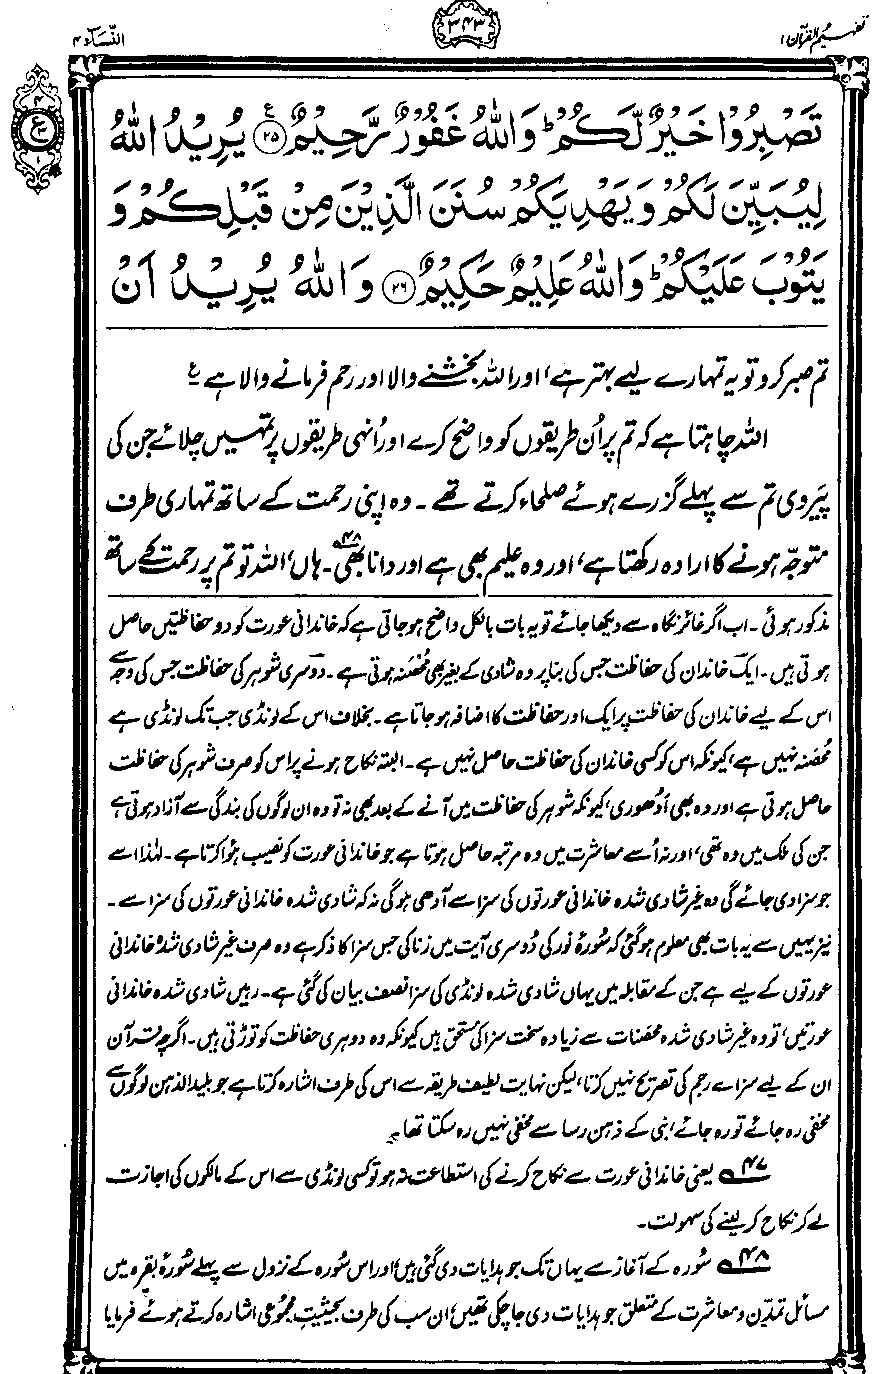 تفہیم القرآن ۱
۳۴۳
النّساء ۴
تَصْبِرُوْا خَيْرٌ لَّكُمْ ؕ وَاللّٰهُ غَفُوْرٌ رَّحِيْمٌ ﴿۲۵﴾ يُرِيْدُ اللّٰهُ
لِيُبَيِّنَ لَكُمْ وَيَهْدِيَكُمْ سُنَنَ الَّذِيْنَ مِنْ قَبْلِكُمْ وَ
يَتُوْبَ عَلَيْكُمْ ؕ وَاللّٰهُ عَلِيْمٌ حَكِيْمٌ ﴿۲۶﴾ وَاللّٰهُ يُرِيْدُ اَنْ
تم صبر کرو تو یہ تمہارے لیے بہتر ہے، اور اللہ بخشنے والا اور رحم فرمانے والا ہے ع
اللہ چاہتا ہے کہ تم پر اُن طریقوں کو واضح کرے اور اُنہی طریقوں پر تمہیں چلائے جن کی
پیروی تم سے پہلے گزرے ہوئے صلحاء کرتے تھے۔ وہ اپنی رحمت کے ساتھ تمہاری طرف
متوجّہ ہونے کا ارادہ رکھتا ہے، اور وہ علیم بھی ہے اور دانا بھی۴۸۔ ہاں، اللہ تو تم پر رحمت کے ساتھ
مذکور ہوئی۔ اب اگر غائر نگاہ سے دیکھا جائے تو یہ بات بالکل واضح ہو جاتی ہے کہ خاندانی عورت کو دو حفاظتیں حاصل
ہوتی ہیں۔ ایک خاندان کی حفاظت جس کی بنا پر وہ شادی کے بغیر بھی مُحْصَنہ ہوتی ہے۔ دوسری شوہر کی حفاظت جس کی وجہ سے
اس کے لیے خاندان کی حفاظت پر ایک اور حفاظت کا اضافہ ہو جاتا ہے۔ بخلاف اس کے لونڈی جب تک لونڈی ہے
مُحْصَنہ نہیں ہے، کیونکہ اس کو کسی خاندان کی حفاظت حاصل نہیں ہے۔ البتہ نکاح ہونے پر اس کو صرف شوہر کی حفاظت
حاصل ہوتی ہے اور وہ بھی اَدھوری، کیونکہ شوہر کی حفاظت میں آنے کے بعد بھی نہ تو وہ ان لوگوں کی بندگی سے آزاد ہوتی ہے
جن کی مِلک میں وہ تھی، اور نہ اُسے معاشرت میں وہ مرتبہ حاصل ہوتا ہے جو خاندانی عورت کو نصیب ہُوا کرتا ہے۔ لہٰذا اسے
جو سزا دی جائے گی وہ غیر شادی شدہ خاندانی عورتوں کی سزا سے آدھی ہو گی نہ کہ شادی شدہ خاندانی عورتوں کی سزا سے۔
نیز یہیں سے یہ بات بھی معلوم ہو گئی کہ سُورۂ نور کی دُوسری آیت میں زنا کی جس سزا کا ذکر ہے وہ صرف غیر شادی شدہ خاندانی
عورتوں کے لیے ہے جن کے مقابلہ میں یہاں شادی شدہ لونڈی کی سزا نصف بیان کی گئی ہے۔ رہیں شادی شدہ خاندانی
عورتیں، تو وہ غیر شادی شدہ محصنات سے زیادہ سخت سزا کی مستحق ہیں کیونکہ وہ دوہری حفاظت کو توڑتی ہیں۔ اگرچہ قرآن
ان کے لیے سزائے رجم کی تصریح نہیں کرتا، لیکن نہایت لطیف طریقہ سے اس کی طرف اشارہ کرتا ہے جو بلید الذہن لوگوں سے
مخفی رہ جائے تو رہ جائے، نبی کے ذہنِ رسا سے مخفی نہیں رہ سکتا تھا۔
۴۷ یعنی خاندانی عورت سے نکاح کرنے کی استطاعت نہ ہو تو کسی لونڈی سے اس کے مالکوں کی اجازت
لے کر نکاح کر لینے کی سہولت۔
۴۸ سُورہ کے آغاز سے یہاں تک جو ہدایات دی گئی ہیں، اور اس سُورہ کے نزول سے پہلے سُورۂ بقرہ میں
مسائلِ تمدّن و معاشرت کے متعلق جو ہدایات دی جا چکی تھیں، ان سب کی طرف بحیثیتِ مجموعی اشارہ کرتے ہوئے فرمایا